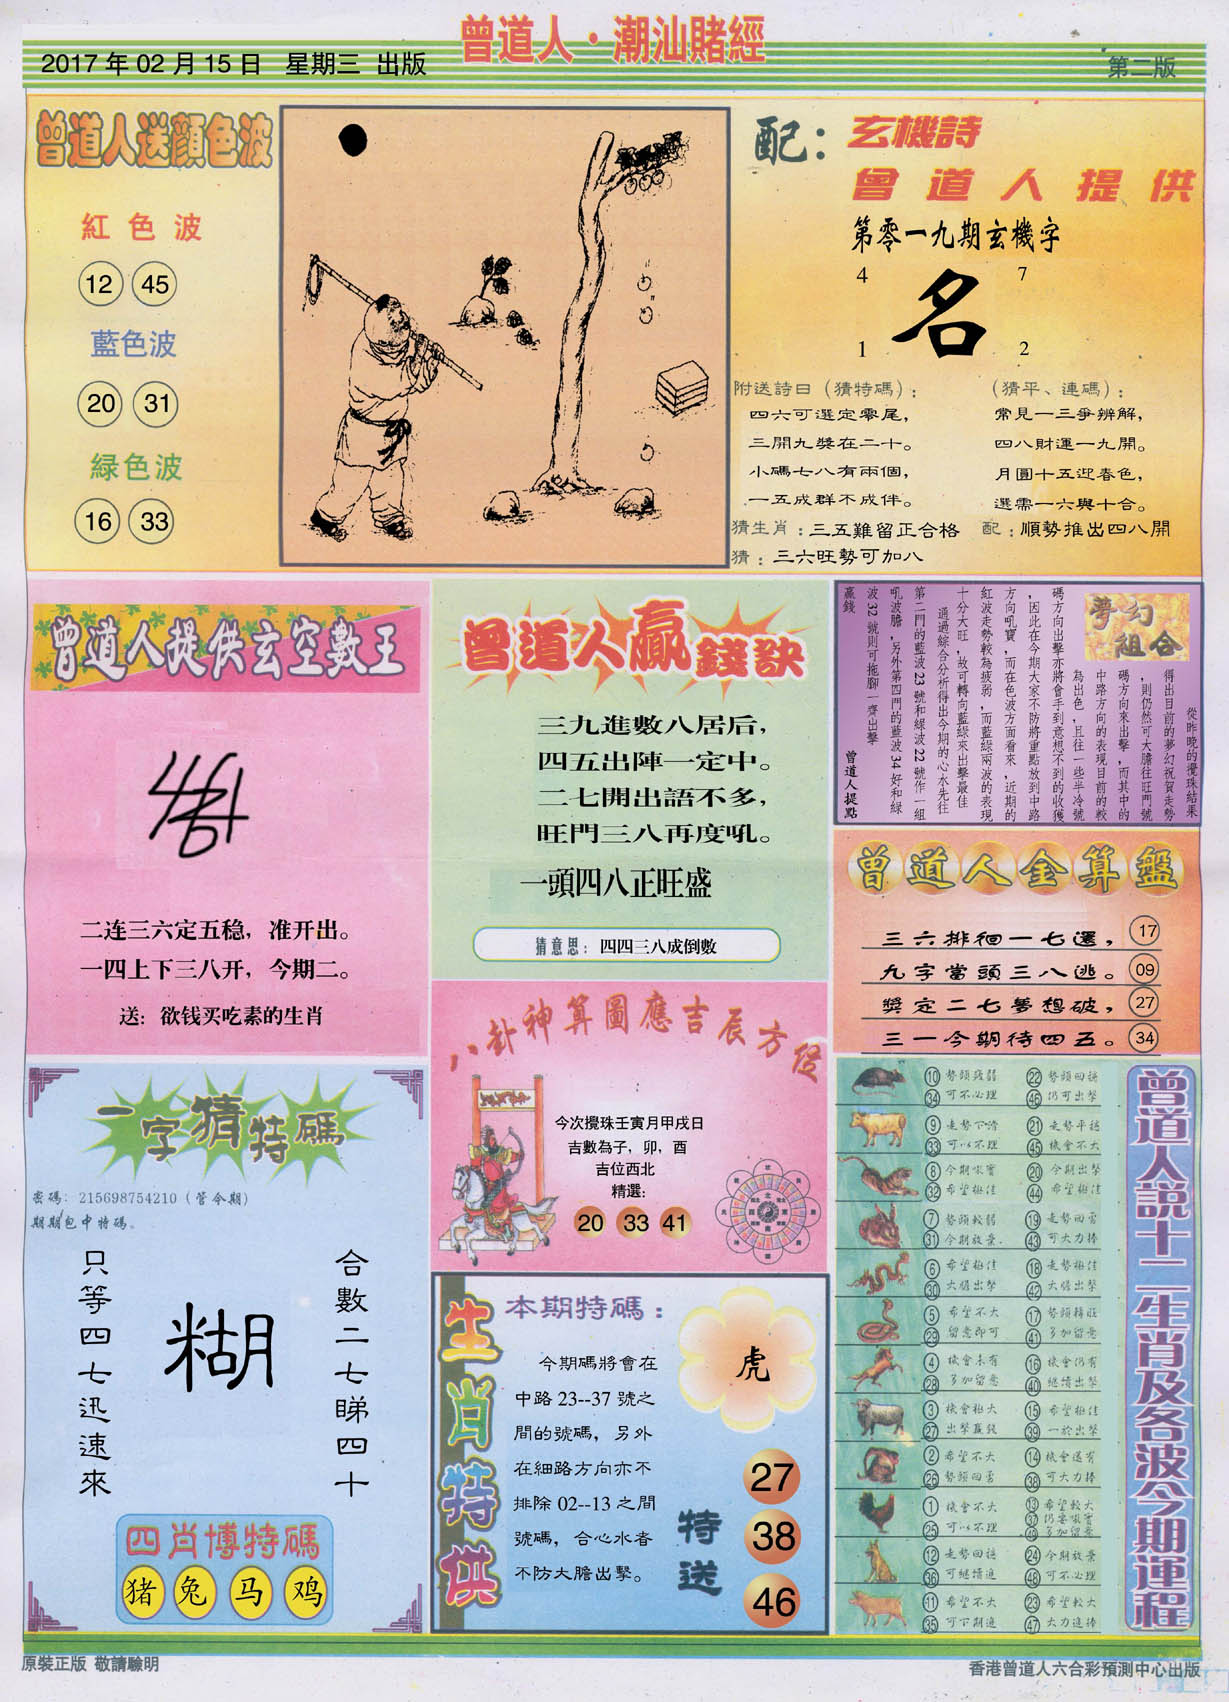 曾道人·潮汕賭經
2017 年 02 月 15 日 星期三 出版
第二版
曾道人送顔色波
紅色波
12 45
藍色波
20 31
緑色波
16 33
配：玄機詩
曾道人提供
第零一九期玄機字
4 7
名
1 2
附送詩曰（猜特碼）：
四六可選定零尾，
三開九獎在二十。
小碼七八有兩個，
一五成群不成伴。
（猜平、連碼）：
常見一三爭辨解，
四八財運一九開。
月圓十五迎春色，
選需一六與十合。
猜生肖：三五難留正合格
配：順勢推出四八開
猜：三六旺勢可加八
曾道人提供玄空數王
二连三六定五稳，准开出。
一四上下三八开，今期二。
送：欲钱买吃素的生肖
曾道人贏錢訣
三九進數八居后，
四五出陣一定中。
二七開出語不多，
旺門三八再度吼。
一頭四八正旺盛
猜意思：四四三八成倒數
夢幻組合
從昨晚的攪珠結果
得出目前的夢幻祝賀走勢
，則仍然可大膽往旺門號
碼方向來出擊，而其中的
中路方向的表現目前的較
為出色，且往一些半冷號
碼方向出擊亦將會手到意想不到的收獲
，因此在今期大家不防將重點放到中路
方向吼寶，而在色波方面看來，近期的
紅波走勢較為疲弱，而藍綠兩波的表現
十分大旺，故可轉向藍綠來出擊最佳
通過綜合分析得出今期的心水先往
第二門的藍波 23 號和綠波 22 號作一組
吼波膽，另外第四門的藍波 34 好和綠
波 32 號則可拖腳一齊出擊
贏錢
曾道人提點
曾道人金算盤
三六排徊一七選， 17
九字當頭三八逃。 09
獎定二七夢想破， 27
三一今期待四五。 34
八卦神算圖應吉辰方位
今次攪珠壬寅月甲戌日
吉數為子，卯，酉
吉位西北
精選：
20 33 41
一字猜特碼
密碼：215698754210（管令期）
期期包中特碼。
合數二七睇四十
糊
只等四七迅速來
四肖博特碼
猪 兔 马 鸡
生肖特供
本期特碼：
今期碼將會在
中路 23--37 號之
間的號碼，另外
在細路方向亦不
排除 02--13 之間
號碼，合心水者
不防大膽出擊。
虎
特送
27
38
46
曾道人説十二生肖及各波今期運程
10 勢頭疲弱 22 勢頭回擴
34 可不必理 46 仍可出擊
9 走勢下滑 21 走勢平穩
33 可以不理 45 機會不大
8 今期吼寶 20 今期出擊
32 希望極佳 44 希望極佳
7 勢頭較弱 19 走勢回勇
31 今期放棄 43 可大力捧
6 希望極佳 18 走勢極佳
30 大膽出擊 42 大膽出擊
5 希望不大 17 勢頭轉旺
29 留意即可 41 多加留意
4 機會未有 16 機會仍有
28 多加留意 40 繼續出擊
3 機會極大 15 希望極佳
27 出擊贏錢 39 一於出擊
2 希望不大 14 機會還有
26 勢頭回勇 38 可大力捧
1 機會不大 13 希望較大
37 仍要吼寶
25 可以不理 49 多加留意
12 走勢回穩 24 今期放棄
36 可繼續追 48 可不必理
11 希望不大 23 希望較大
35 可下期追 47 大力追捧
原裝正版 敬請驗明
香港曾道人六合彩預測中心出版